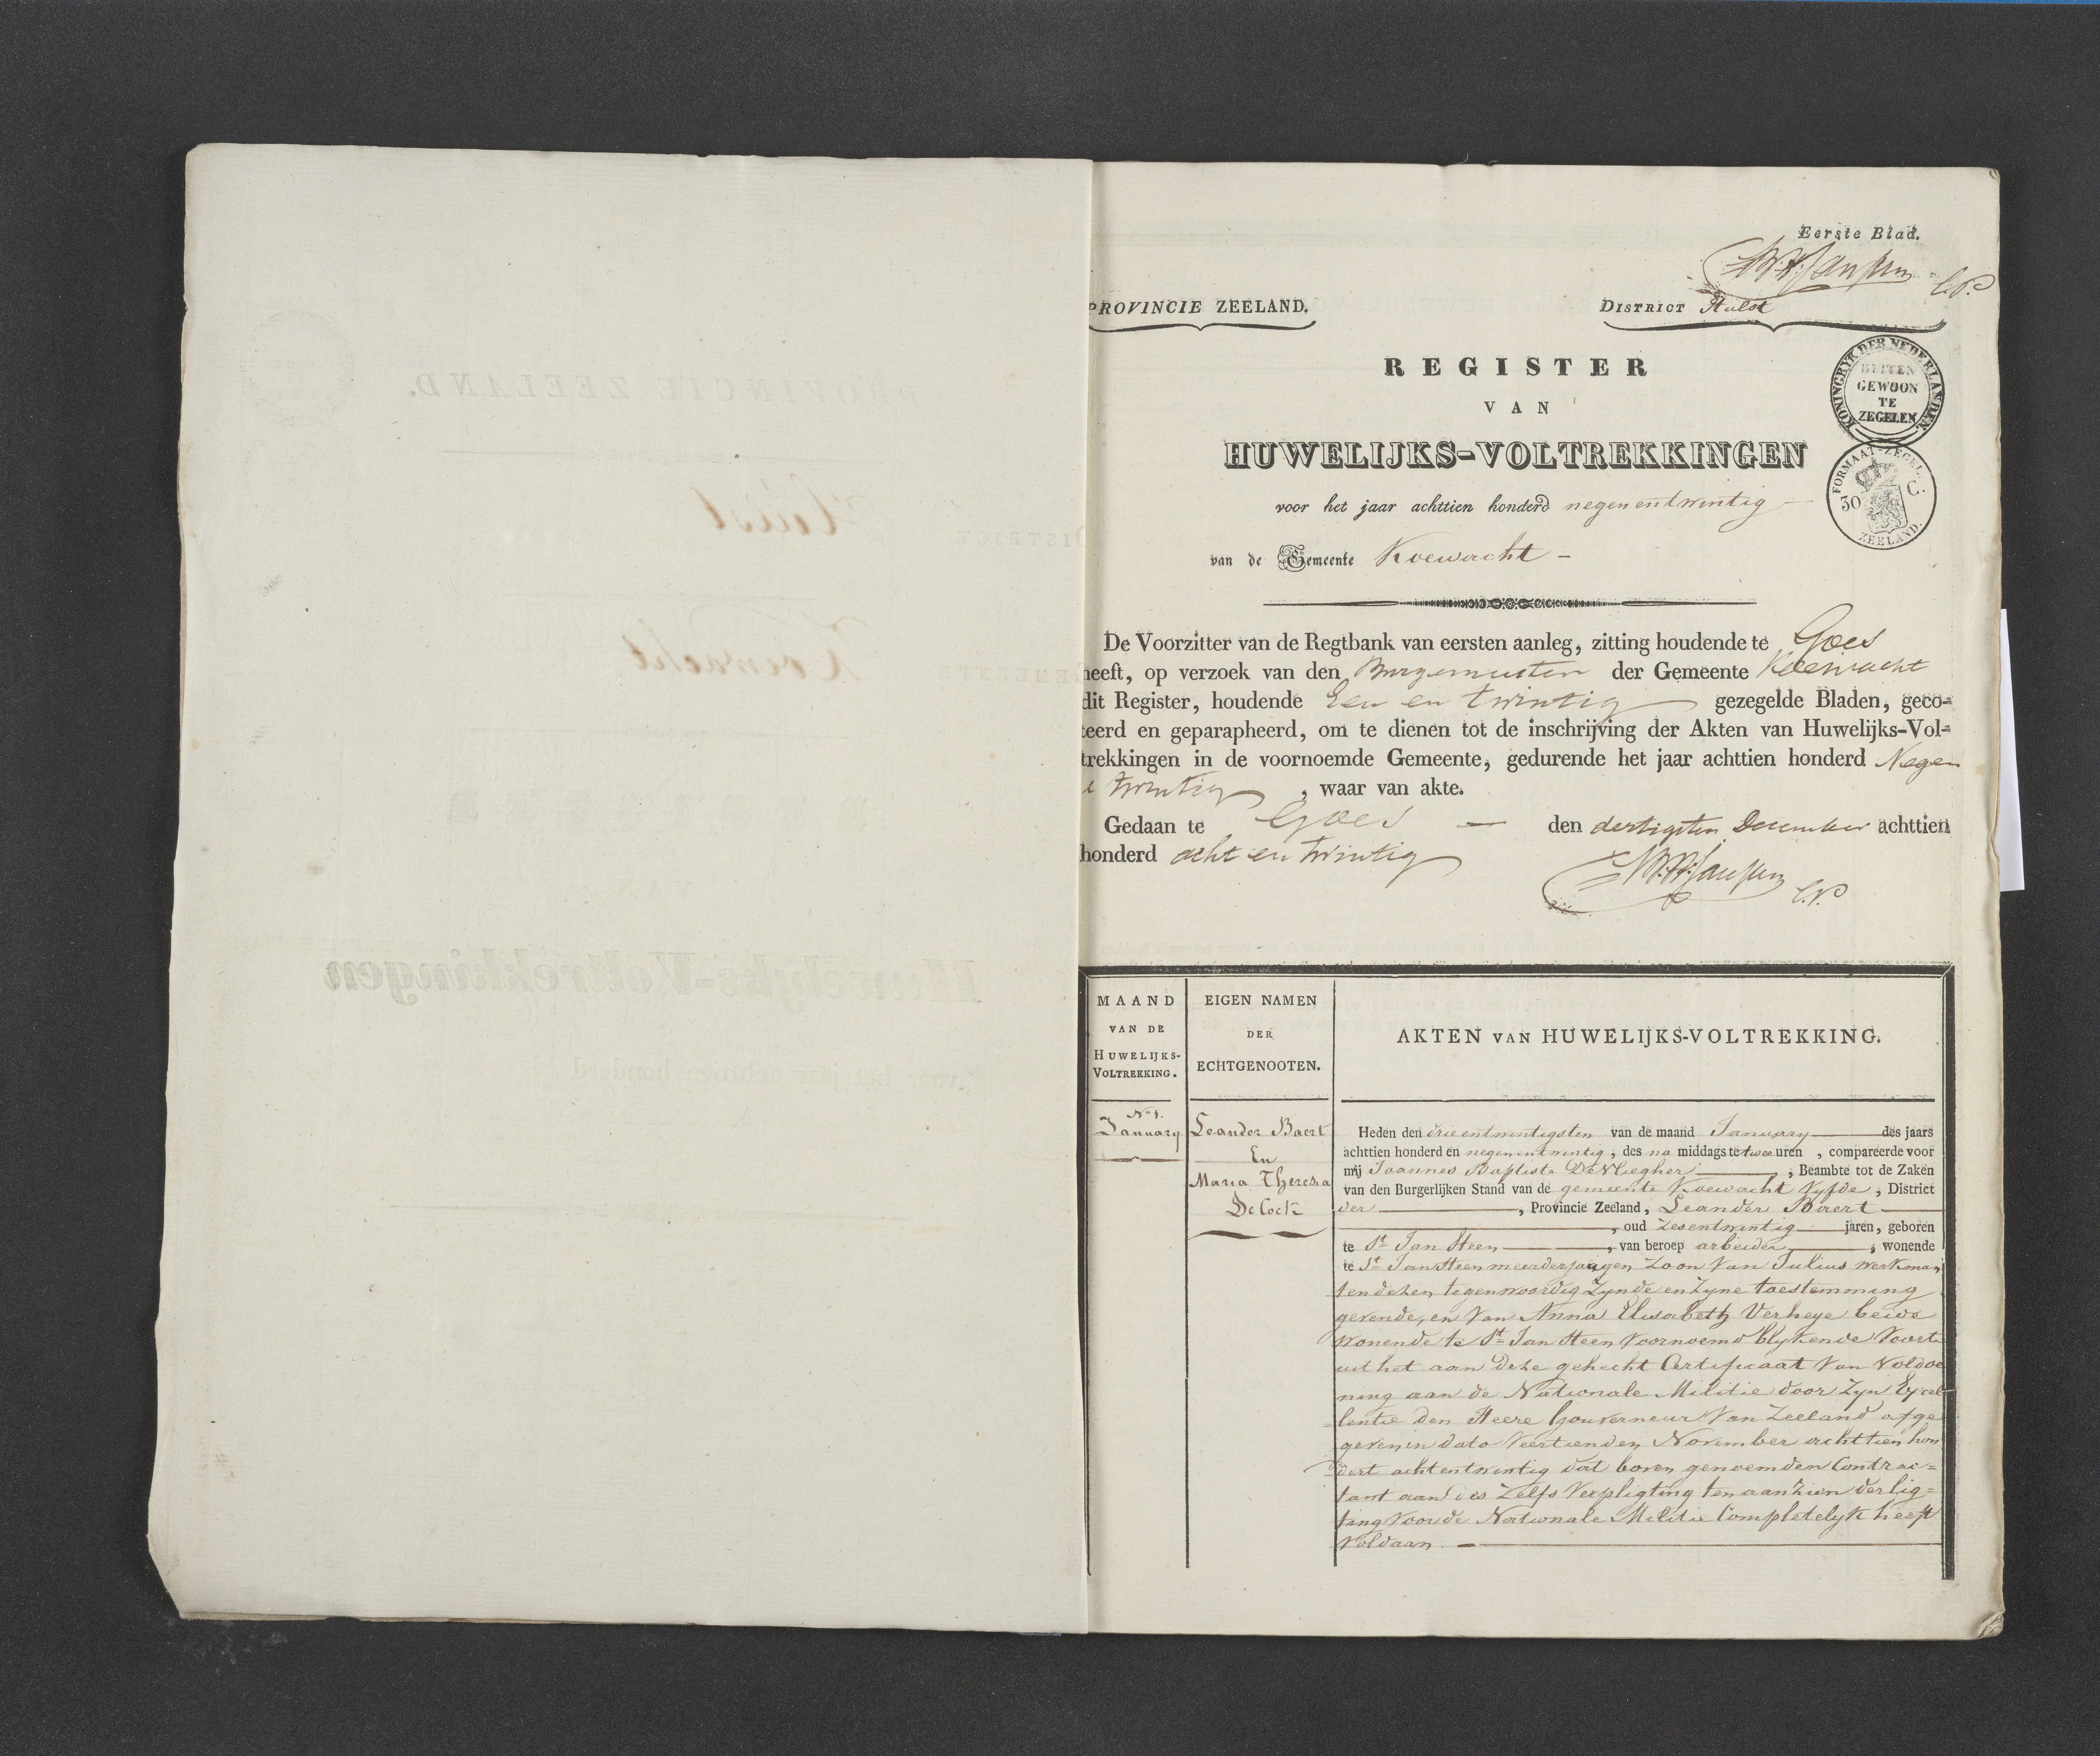 Eerste Blad.
PROVINCIE ZEELAND.
DISTRICT Hulst
REGISTER
VAN
HUWELIJKS-VOLTREKKINGEN
voor het jaar achttien honderd negenentwintig
van de Gemeente Koewacht
KONINGRYK DER NEDERLANDEN.
BUITEN
GEWOON
TE
ZEGELEN
FORMAAT-ZEGEL
30 C.
ZEELAND.
De Voorzitter van de Regtbank van eersten aanleg, zitting houdende te Goes
heeft, op verzoek van den Burgemeester der Gemeente Koewacht
dit Register, houdende Een en twintig gezegelde Bladen, geco-
teerd en geparapheerd, om te dienen tot de inschrijving der Akten van Huwelijks-Vol-
trekkingen in de voornoemde Gemeente, gedurende het jaar achttien honderd Negen
twintig, waar van akte.
Gedaan te Goes den dertigsten December achttien
honderd acht en twintig
MAAND
VAN DE
HUWELIJKS-
VOLTREKKING.
EIGEN NAMEN
DER
ECHTGENOOTEN.
AKTEN VAN HUWELIJKS-VOLTREKKING.
No 1.
January
Leander Baert
En
Maria Theresia
De Cock
Heden den drieentwintigsten van de maand January des jaars
achttien honderd en negenentwintig, des na middags te twee uren, compareerde voor
mij Joannes Baptiste De Vliegher, Beambte tot de Zaken
van den Burgerlijken Stand van de gemeente Koewacht Vyfde, District
der, Provincie Zeeland, Leander Baert
, oud zesentwintig jaren, geboren
te St Jan Steen, van beroep arbeider, wonende
te St Jan Steen meerderjarigen zoon Van Julius werkman
ten dezen tegenwoordig zynde en zyne toestemming
gevende, en Van Anna Elisabeth Verheye beide
wonende te St Jan Steen Voornoemd blykende Voorts
uit het aan deze gehecht Certificaat Van Voldoe
ning aan de Nationale Militie door Zyn Excel-
lentie den Heere Gouverneur Van Zeeland afge
geven in dato Veertienden November achttien hon
dert achtentwintig dat boven genoemden Contrac=
tant aan des Zelfs Verpligting ten aanzien der lig=
ting Voor de Nationale Militie Completelyk heeft
Voldaan.